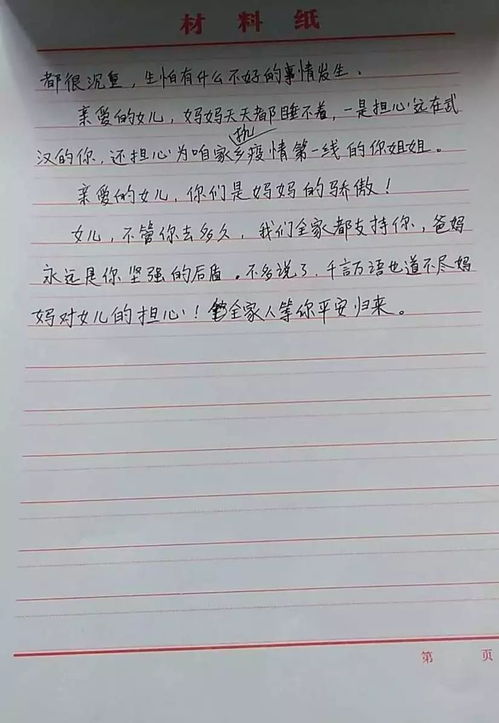 材料纸
都很沉重，生怕有什么不好的事情发生。
亲爱的女儿，妈妈天天都睡不着，一是担心远在武
汉的你，还担心为咱家乡抗疫情第一线的你姐姐。
亲爱的女儿，你们是妈妈的骄傲！
女儿，不管你去多久，我们全家都支持你，爸妈
永远是你坚强的后盾。不多说了，千言万语也道不尽妈
妈对女儿的担心！全家人等你平安归来。
第 页